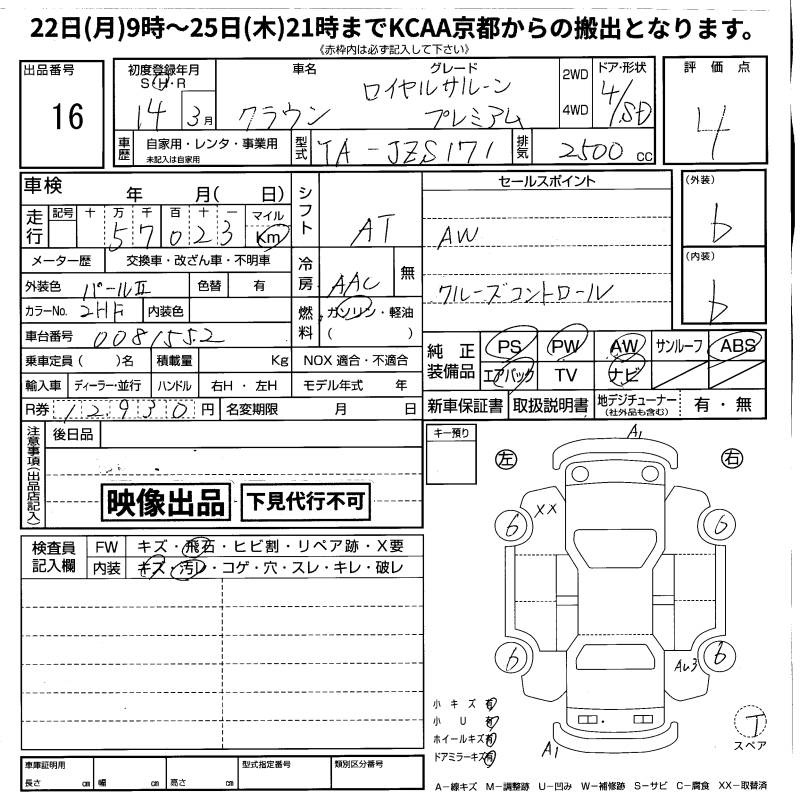 22日(月)9時～25日(木)21時までKCAA京都からの搬出となります。
《赤枠内は必ず記入して下さい》
出品番号
16
初度登録年月 車名 グレード
S・H・R
14 3月 クラウン ロイヤルサルーン
プレミアム
2WD
4WD
ドア・形状
4/SD
評価点
4
車歴 自家用・レンタ・事業用
未記入は自家用
型式 TA-JZS171
排気 2500 cc
車検 年 月( 日)
走行 記号 十 万 千 百 十 一 マイル
57023 Km
メーター歴 交換車・改ざん車・不明車
外装色 パールⅡ 色替 有
カラーNo. 2HF 内装色
車台番号 0081552
乗車定員( )名 積載量 Kg NOX 適合・不適合
輸入車 ディーラー・並行 ハンドル 右H・左H モデル年式 年
R券 12930円 名変期限 月 日
シフト AT
冷房 AAC 無
燃料 ガソリン・軽油
( )
セールスポイント
AW
クルーズコントロール
(外装)
b
(内装)
b
純正装備品 PS PW AW サンルーフ ABS
エアバック TV ナビ
新車保証書 取扱説明書 地デジチューナー 有・無
(社外品も含む)
注意事項(出品店記入)
後日品
映像出品 下見代行不可
キー預り
検査員記入欄 FW キズ・飛石・ヒビ割・リペア跡・X要
内装 キズ・汚レ・コゲ・穴・スレ・キレ・破レ
左 右
A1
XX
6 6
6 6
Au3
A1
小キズ 有
小U 有
ホイールキズ 有
ドアミラーキズ 有
T
スペア
車庫証明用 型式指定番号 類別区分番号
長さ cm 幅 cm 高さ cm
A－線キズ M－調整跡 U－凹み W－補修跡 S－サビ C－腐食 XX－取替済